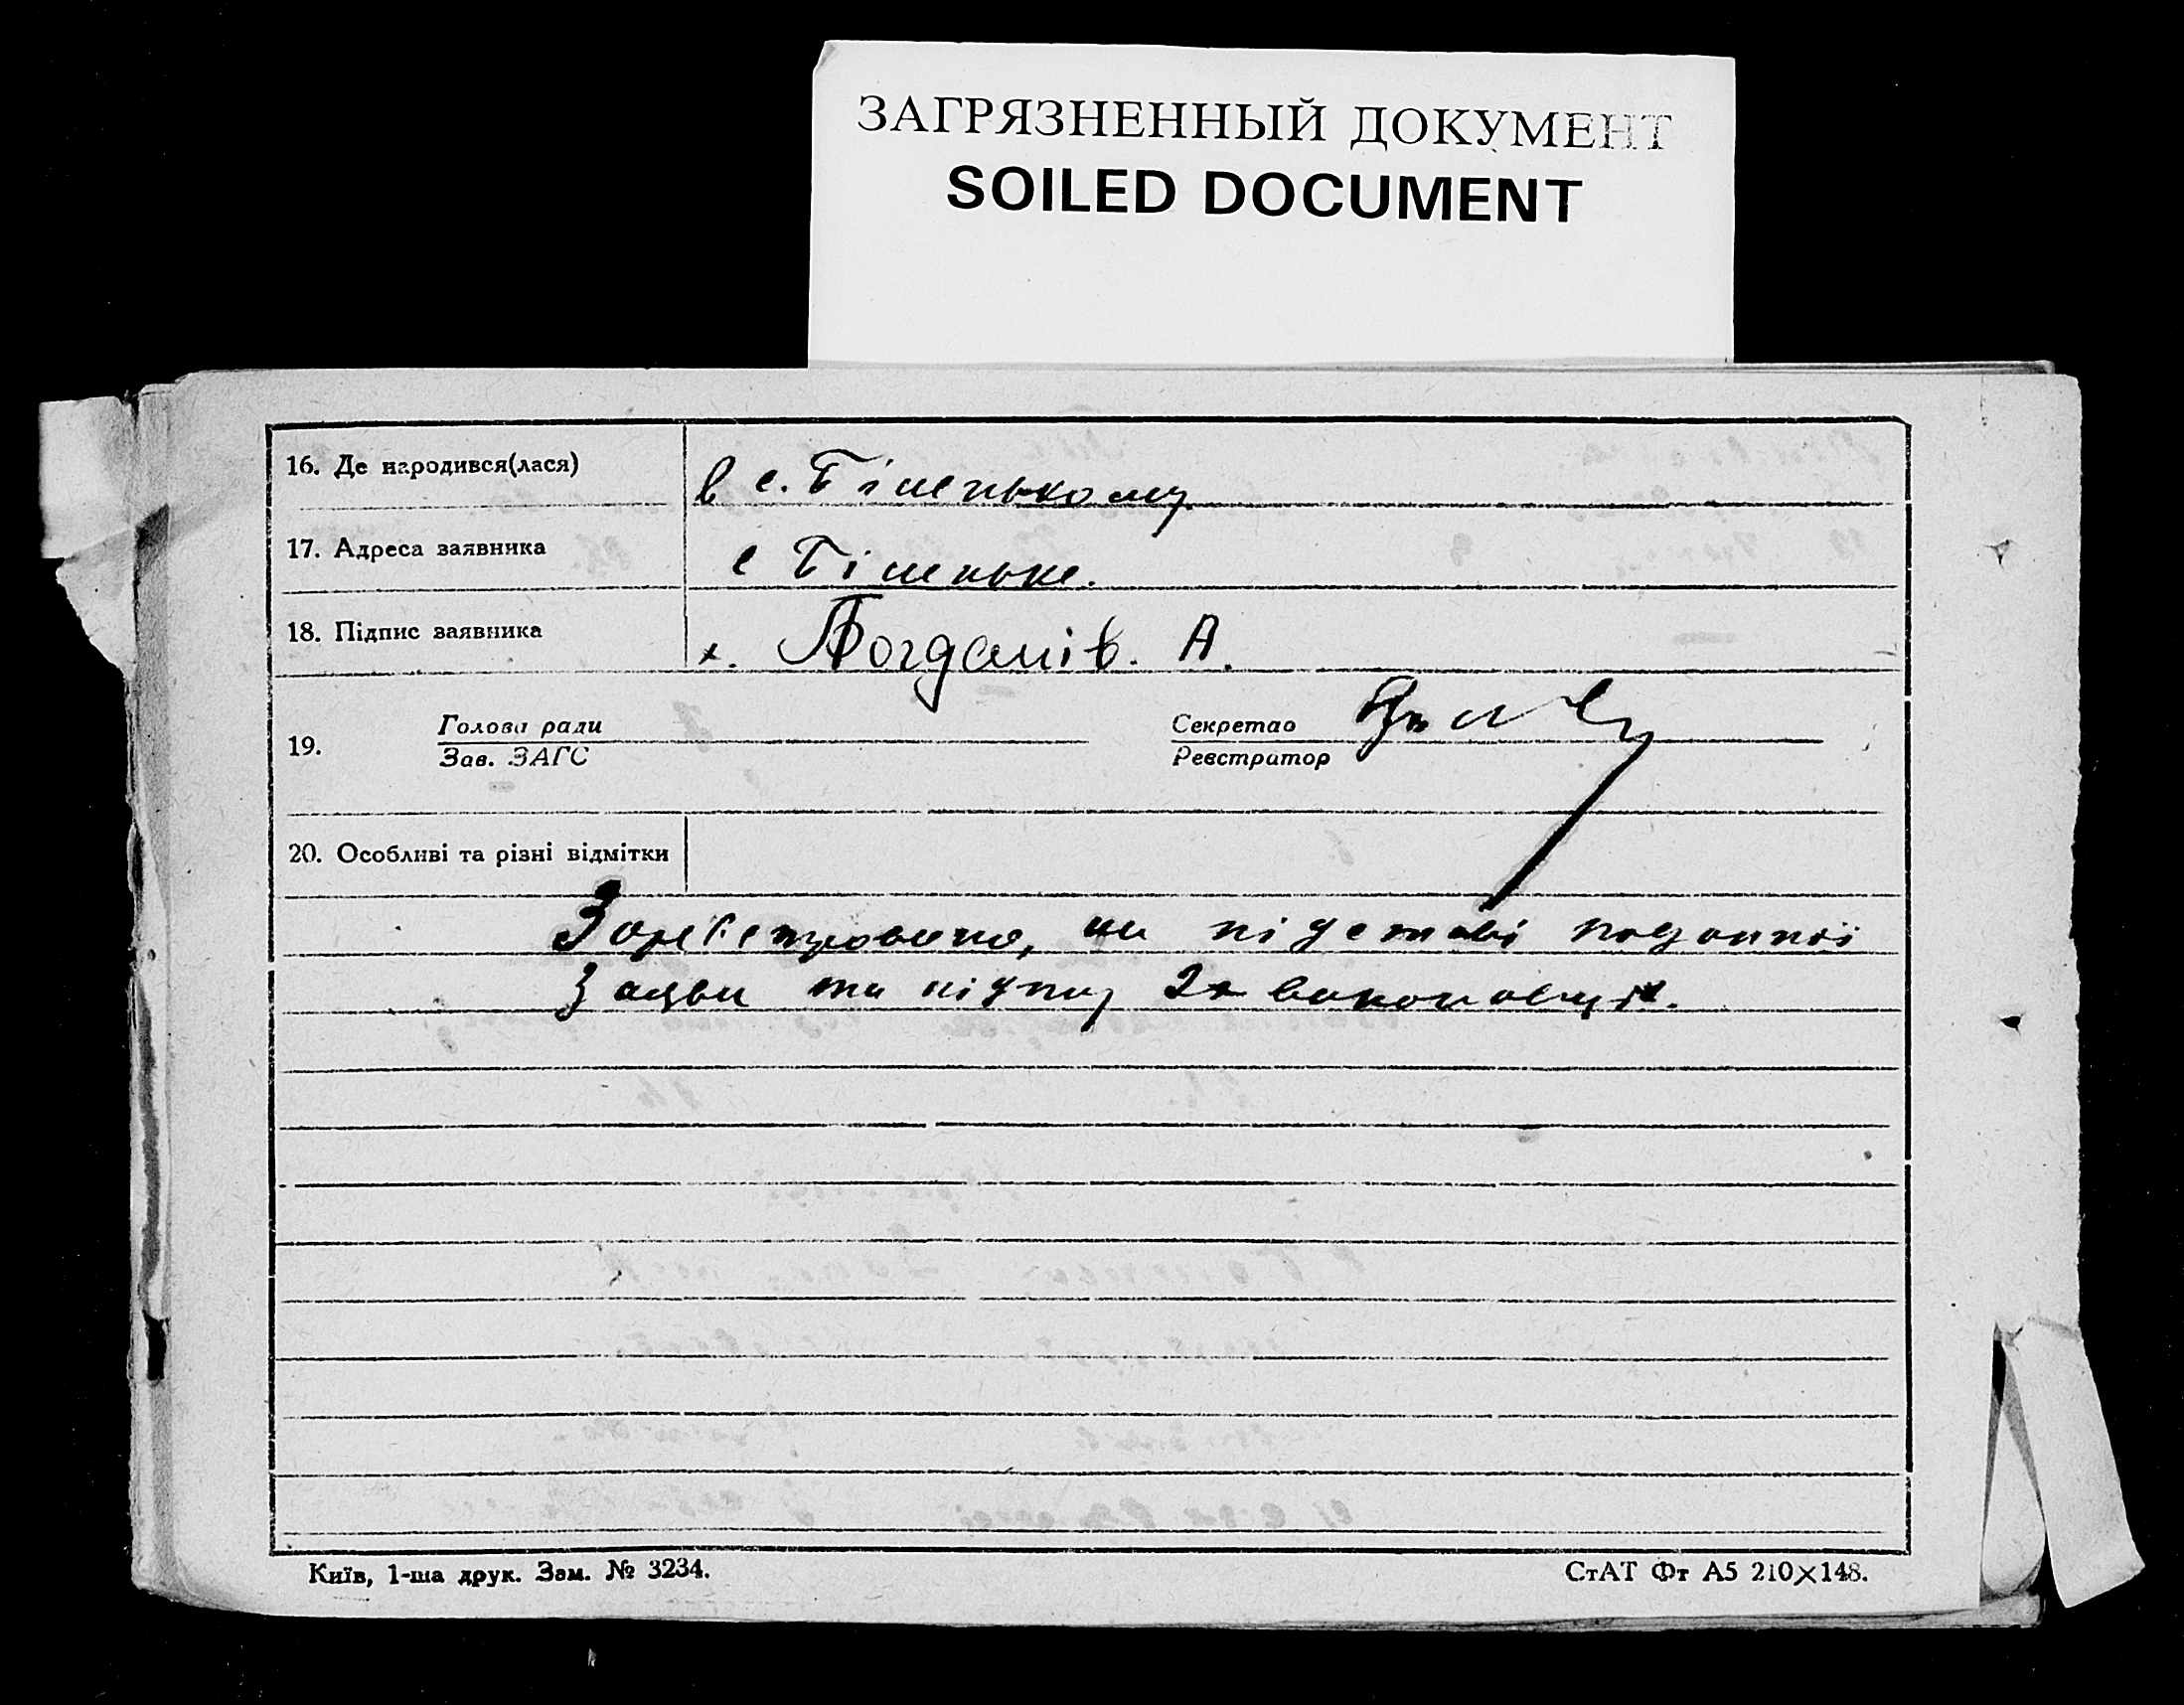 ЗАГРЯЗНЕННЫЙ ДОКУМЕНТ
SOILED DOCUMENT
16. Де народився(лася) в с. Біленькому
17. Адреса заявника с Біленьке.
18. Підпис заявника х. Богданів. А.
19. Голова ради Секретар
Зав. ЗАГС Реєстратор
20. Особливі та різні відмітки
Зареєстровано, на підставі поданної
Заяви та підпису 2х виконавців.
Київ, 1-ша друк. Зам. № 3234. СтАТ Фт А5 210×148.